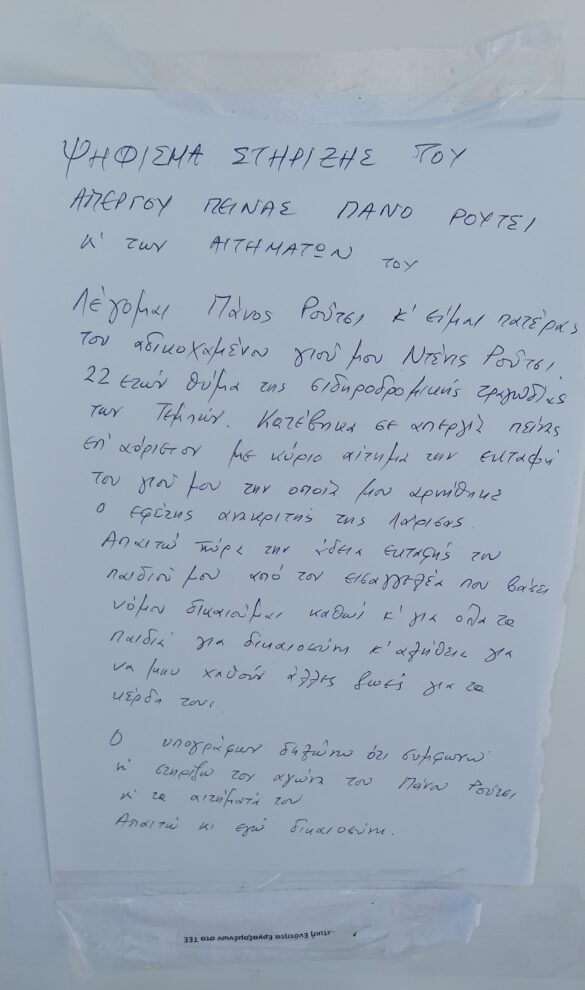 ΨΗΦΙΣΜΑ ΣΤΗΡΙΞΗΣ ΤΟΥ
ΑΠΕΡΓΟΥ ΠΕΙΝΑΣ ΠΑΝΟ ΡΟΥΤΣΙ
Κ' των ΑΙΤΗΜΑΤΩΝ του
Λέγομαι Πάνος Ρούτσι κ' είμαι πατέρας
του αδικοχαμένου γιού μου Ντένις Ρούτσι,
22 ετών θύμα της σιδηροδρομικής τραγωδίας
των Τεμπών. Κατέβηκα σε απεργία πείνας
επ' αόριστον με κύριο αίτημα την εκταφή
του γιού μου την οποία μου αρνήθηκε
ο εφέτης ανακριτής της Λάρισας.
Απαιτώ τώρα την άδεια εκταφής του
παιδιού μου από τον εισαγγελέα που βάσει
νόμου δικαιούμαι καθώς κ' για όλα τα
παιδιά για δικαιοσύνη κ' αλήθεια για
να μην χαθούν άλλες ζωές για τα
κέρδη τους.
Ο υπογράφων δηλώνω ότι συμφωνώ
κ' στηρίζω τον αγώνα του Πάνου Ρούτσι
κ' τα αιτήματά του
Απαιτώ κι εγώ δικαιοσύνη.
τική Ενότητα Εργαζομένων στο ΤΕΕ